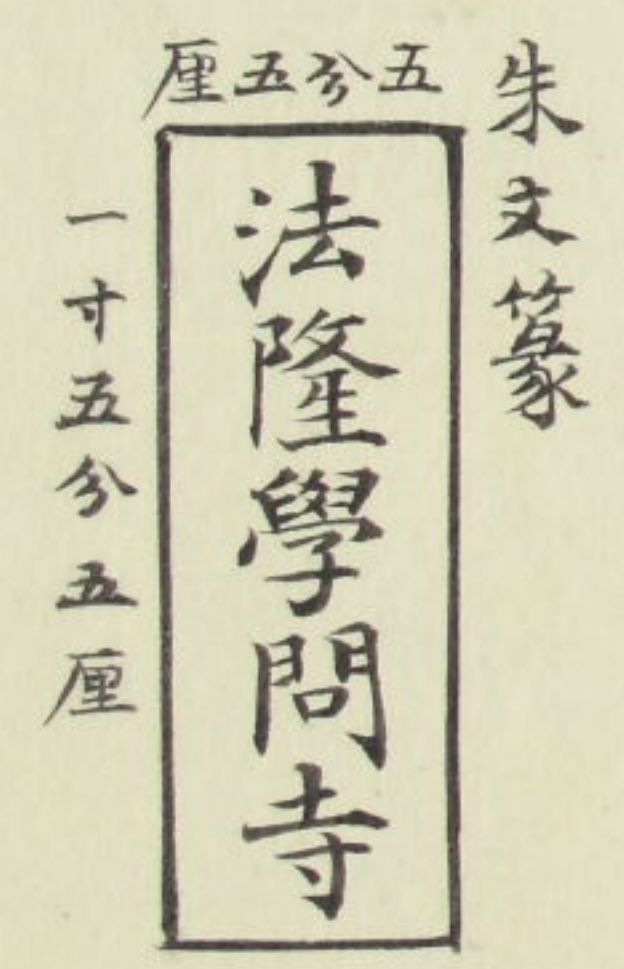 朱文篆
五分五厘
法隆學問寺
一寸五分五厘